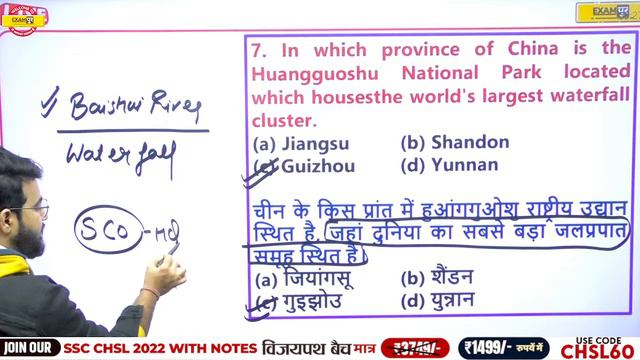 EXAMपुर
7. In which province of China is the
Huangguoshu National Park located
which housesthe world's largest waterfall
cluster.
(a) Jiangsu (b) Shandon
(c) Guizhou (d) Yunnan
Baishui River
Waterfall
SCO - HQ
चीन के किस प्रांत में हुआंगगुओशु राष्ट्रीय उद्यान
स्थित है, जहां दुनिया का सबसे बड़ा जलप्रपात
समूह स्थित है
(a) जियांगसू (b) शैंडन
(c) गुइझोउ (d) युन्नान
JOIN OUR SSC CHSL 2022 WITH NOTES विजयपथ बैच मात्र ₹1499/- रुपयें में
USE CODE
CHSL60